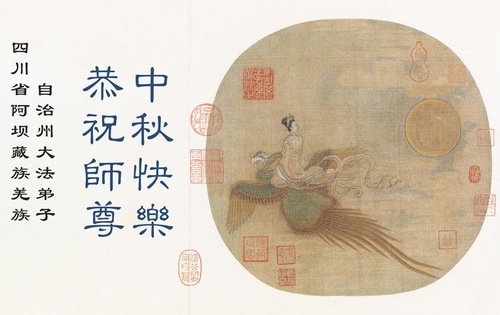 恭祝師尊
中秋快樂
四川省阿坝藏族羌族
自治州大法弟子